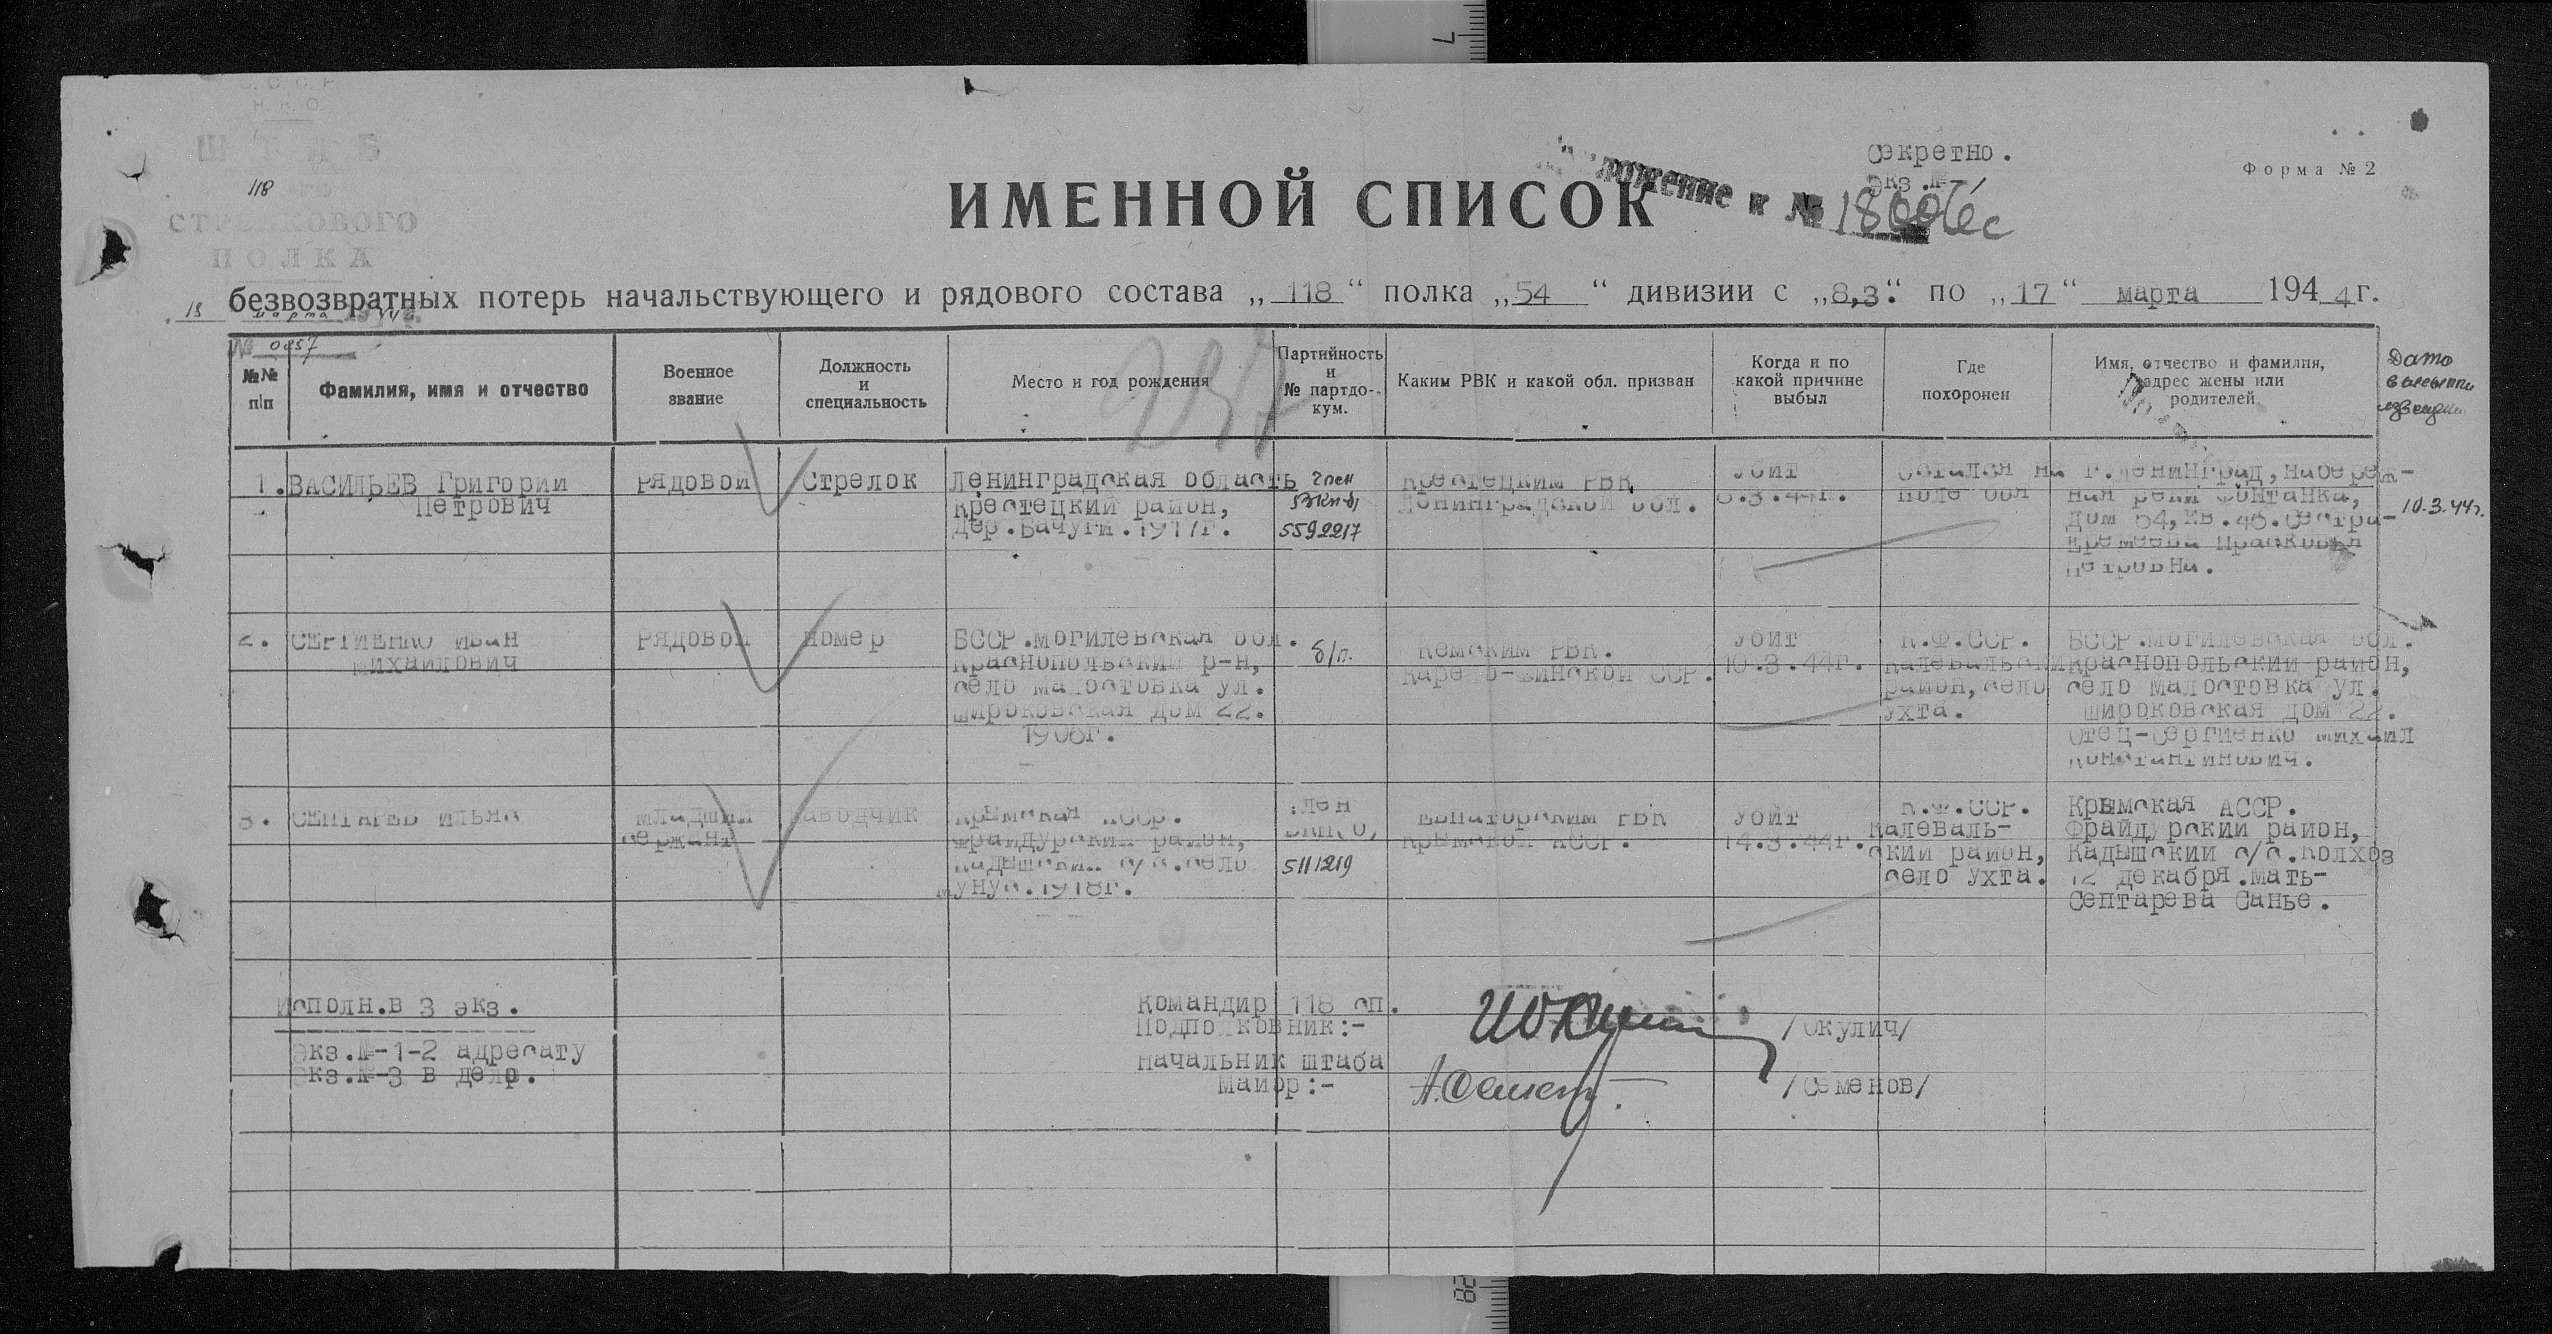 Н. К. О.
ШТАБ
118
СТРЕЛКОВОГО
ПОЛКА
Секретно.
экз.№
Форма № 2
ИМЕННОЙ СПИСОК
к №
безвозвратных потерь начальствующего и рядового состава „118“ полка „54“ дивизии с „8,3“. по „17“ марта 1944г.
18 марта
№ 0857
№№ п/п
Фамилия, имя и отчество
Военное звание
Должность и специальность
Место и год рождения
Партийность и № партдо-кум.
Каким РВК и какой обл. призван
Когда и по какой причине выбыл
Где похоронен
Имя, отчество и фамилия, адрес жены или родителей
Дата высылки извещен.
1. ВАСИЛЬЕВ Григорий
Петрович
рядовой
Стрелок
Ленинградская область
Крестецкий район,
дер.Бачуги.1917г.
член
ВКП(б)
5592217
Крестецким РВК
Ленинградской обл.
Убит
8.3.44г.
Остался на
поле боя
г.Ленинград,набереж-
ная реки Фонтанка,
дом 64,кв.46.Сестра-
Еремеева Прасковья
Петровна.
10.3.44г.
2. СЕРГИЕНКО Иван
Михайлович
рядовой
номер
БССР.Могилевская обл.
Краснопольский р-н,
село Малостовка ул.
Широковская дом 22.
1906г.
б/п.
Кемским РВК.
Карело-Финской ССР.
Убит
10.3.44г.
К.Ф.ССР.
Калевальский
район,село
Ухта.
БССР.Могилевская обл.
Краснопольский район,
село Малостовка ул.
Широковская дом 22.
Отец-Сергиенко Михаил
Константинович.
3. СЕПТАРЕВ Ильяс
младший
сержант
наводчик
Крымская АССР.
Фрайдурский район,
Кадышский с/с.село
Мунус.1918г.
член
ВКП(б)
5111219
Евпаторским РВК
Крымской АССР.
Убит
14.3.44г.
К.Ф.ССР.
Калеваль-
ский район,
село Ухта.
Крымская АССР.
Фрайдурский район,
Кадышский с/с.колхоз
12 декабря.Мать-
Септарева Санье.
Исполн.в 3 экз.
экз.№-1-2 адресату
экз.№-3 в дело.
Командир 118 сп.
Подполковник:-
/Окулич/
Начальник штаба
Майор:-
/Семенов/